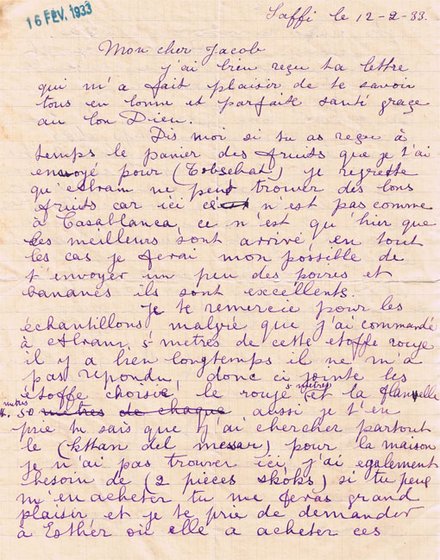 16 FÉV. 1933
Saffi le 12-2-33.
Mon cher Jacob
j'ai bien reçu ta lettre
qui m'a fait plaisir de te savoir
tous en bonne et parfaite santé graçe
au bon Dieu.
Dis moi si tu as reçu à
temps le panier des fruits que je t'ai
envoyé pour (Tobsehat) je regrette
qu'Abram ne peut trouver des bons
fruits car ici n'est pas comme
à Casablanca, ce n'est qu'hier que
les meilleurs sont arrivé, en tout
les cas je ferai mon possible de
t'envoyer un peu des poires et
bananes ils sont excellents.
Je te remercie pour les
échantillons malgré que j'ai commandé
à Abram, 5 metres de cette etoffe rouge
il y a bien longtemps il ne m'a
pas repondu, donc ci jointe les
étoffe choisie le rouge (5 metres) et la flanelle
metres
4.50 metres de chaque aussi je t'en
prie tu sais que j'ai chercher partout
le (kttan del messar) pour la maison
je n'ai pas trouver ici, j'ai egalement
besoin de (2 pièces skoks) si tu peus
m'en acheter tu me feras grand
plaisir et je te prie de demander
à Esther où elle a acheter ces